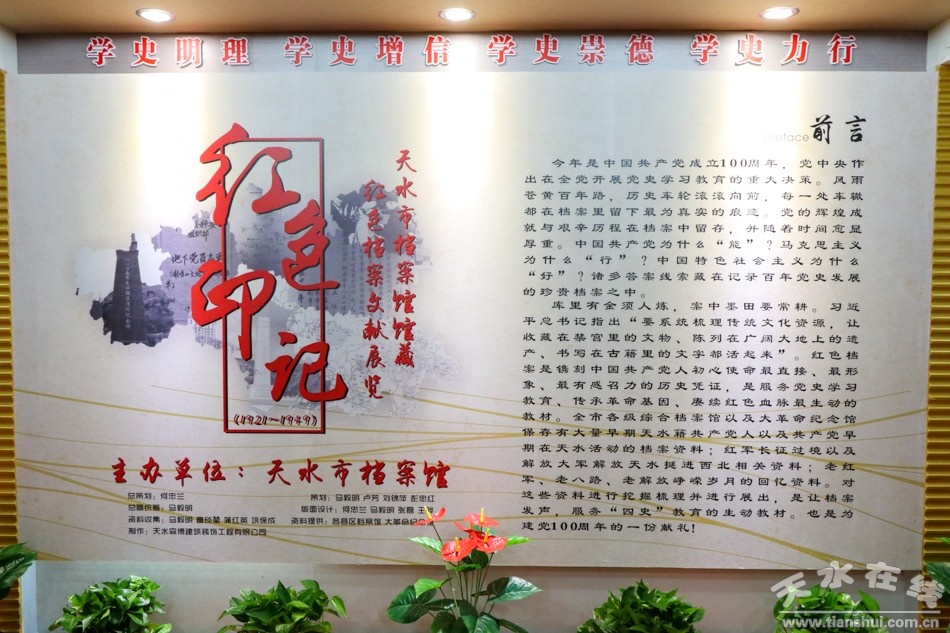 学史明理 学史增信 学史崇德 学史力行
红色印记
(1921~1949)
天水市档案馆馆藏
红色档案文献展览
地下党员名单
主办单位：天水市档案馆
总策划：何忠兰
总编统稿：马毅明
资料收集：马毅明 蒲红英 巩保成
制作：天水焱博建筑装饰工程有限公司
策划：马毅明 卢芳 刘锦萍 彭忠红
版面设计：何忠兰 马毅明 张磊
资料提供：各县区档案馆 大革命纪
Preface 前言
今年是中国共产党成立100周年，党中央作
出在全党开展党史学习教育的重大决策。风雨
苍黄百年路，历史车轮滚滚向前，每一处车辙
都在档案里留下最为真实的痕迹。党的辉煌成
就与艰辛历程在档案中留存，并随着时间愈显
厚重。中国共产党为什么“能”？马克思主义
为什么“行”？中国特色社会主义为什么
“好”？诸多答案线索藏在记录百年党史发展
的珍贵档案之中。
库里有金须人炼，案中墨田要常耕。习近
平总书记指出“要系统梳理传统文化资源，让
收藏在禁宫里的文物、陈列在广阔大地上的遗
产、书写在古籍里的文字都活起来”。红色档
案是镌刻中国共产党人初心使命最直接、最形
象、最有感召力的历史凭证，是服务党史学习
教育、传承革命基因、赓续红色血脉最生动的
教材。全市各级综合档案馆以及大革命纪念馆
保存有大量早期天水籍共产党人以及共产党早
期在天水活动的档案资料；红军长征过境以及
解放大军解放天水挺进西北相关资料；老红
军、老八路、老解放峥嵘岁月的回忆资料。对
这些资料进行挖掘梳理并进行展出，是让档案
发声，服务“四史”教育的生动教材。也是为
建党100周年的一份献礼！
天水在线
www.tianshui.com.cn